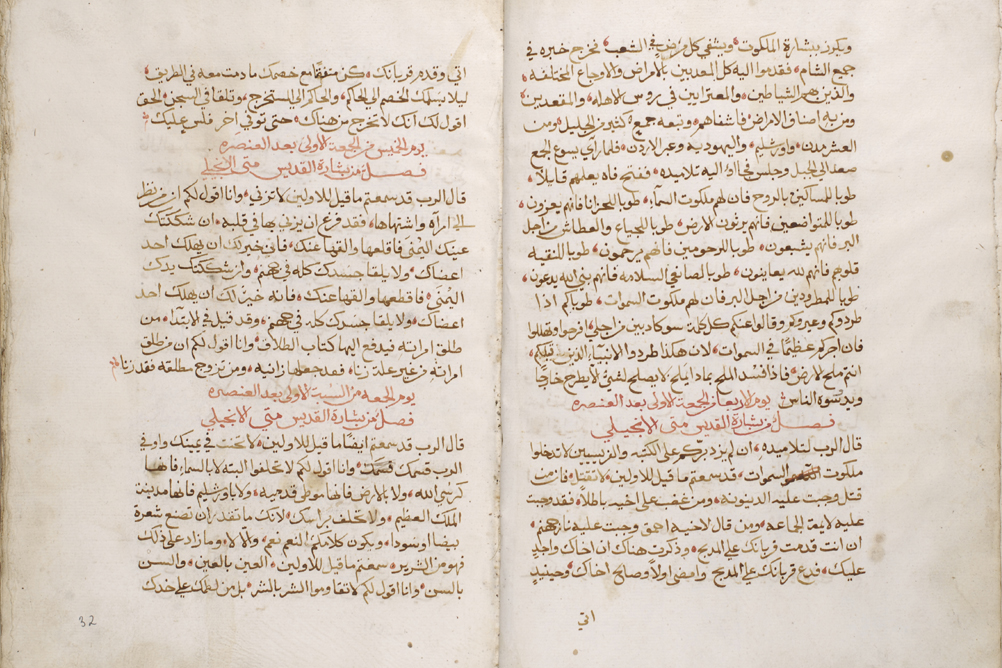 ويكرز ببشارة الملكوت ويشفي كل مرض في الشعب فخرج خبره في
جميع الشام فقدموا اليه كل المعذبين بالامراض والاوجاع المختلفه
والذين بهم الشياطين والمعترايين في روس الاهله والمقعدين
ومن به اصناف الامراض فاشفاهم وتبعه جمع كثير من الجليل ومن
العشر مدن واورشليم واليهوديه وعبر الاردن فلما راي يسوع الجمع
صعد الي الجبل وجلس فجا اليه تلاميذه ففتح فاه يعلهم قايلا
طوبا للمساكين بالروح فان لهم ملكوت السماء طوبا للحزانا فانهم يعزون
طوبا للمتواضعين فانهم يرثون الارض طوبا للجياع والعطاش من اجل
البر فانهم يشبعون طوبا للرحومين فانهم يرحمون طوبا للنقيه
قلوبهم فانهم لله يعاينون طوبا لصانعي السلامه فانهم بني الله يدعون
طوبا للمطرودين من اجل البر فان لهم ملكوت السموات طوباكم اذا
طردوكم وعيروكم وقالوا عنكم كل كلمة سو كادبين من اجلي افرحوا وتهللوا
فان اجركم عظيمًا في السموات لان هكذا طردوا الانبياء الذين قبلكم
انتم ملح الارض فاذا فسد الملح بماذا يملح لا يصلح لشي الا يطرح خارجًا
ويدسوه الناس يوم الاربعا من الجمعة الاولي بعد العنصره
فصل من بشارة القديس متي الانجيلي
قال الرب لتلاميذه ان لم يزد بركم علي الكتبه والفريسيين لا تدخلوا
ملكوت السموات قد سمعتم ما قيل للاولين لا تقتل فان من
قتل وجبت عليه الدينونه ومن غضب علي اخيه باطلاً فقد وجبت
عليه لايمة الجماعه ومن قال لاخيه احمق وجبت عليه نار جهنم
ان انت قدمت قربانك علي المدبح وذكرت هناك ان اخاك واجدٍ
عليك فدع قربانك علي المدبح وامض اولاً وصالح اخاك وحينيدٍ
اتي
اتي وقدم قربانك كن متفقًا مع خصمك ما دمت معه في الطريق
ليلا يسلمك الخصم الي الحاكم والحاكم الي المستخرج وتلقا في السجن الحق
اقول لك انك لا تخرج من هناك حتي توفي اخر فلس عليك
يوم الخميس من الجمعة الاولي بعد العنصره
فصل من بشارة القديس متي الانجيلي
قال الرب قد سمعتم ما قيل للاولين لا تزني وانا اقول لكم ان من نظر
الي امراه واشتهاها فقد فرغ ان يزني بها في قلبه ان شككتك
عينك اليمني فاقلعها والقها عنك فاني خير لك ان يهلك احد
اعضاك ولا يلقا جسدك كله في جهنم وان شككتك يدك
اليمني فاقطعها والقها عنك فانه خير لك ان يهلك احد
اعضاك ولا يلقا جسدك كله في جهنم وقد قيل في الابتدا من
طلق امراته فيدفع اليها كتاب الطلاق وانا اقول لكم ان من طلق
امراته من غير علة زنا فقد جعلها زانيه ومن تزوج مطلقه فقد زنا
يوم الجمعه من السبة الاولي بعد العنصره
فصل من بشارة القديس متي الانجيلي
قال الرب قد سمعتم ايضًا ما قيل للاولين لا تحنت في يمينك واوفي
الرب قسمك قسمك وانا اقول لكم لا تحلفوا البته لا بالسماء فانها
كرسي الله ولا بالارض فانها موطي قدميه ولا باورشليم فانها مدينة
الملك العظيم ولا تحلف براسك لانك ما تقدر ان تصنع شعرة
بيضا او سودا ويكون كلامكم النعم نعم واللا لا وما زاد علي ذلك
فهو من الشرير سمعتم ما قيل للاولين العين بالعين والسن
بالسن وانا اقول لكم لا تقاوموا الشر بالشر بل من لطمك علي خدك
32